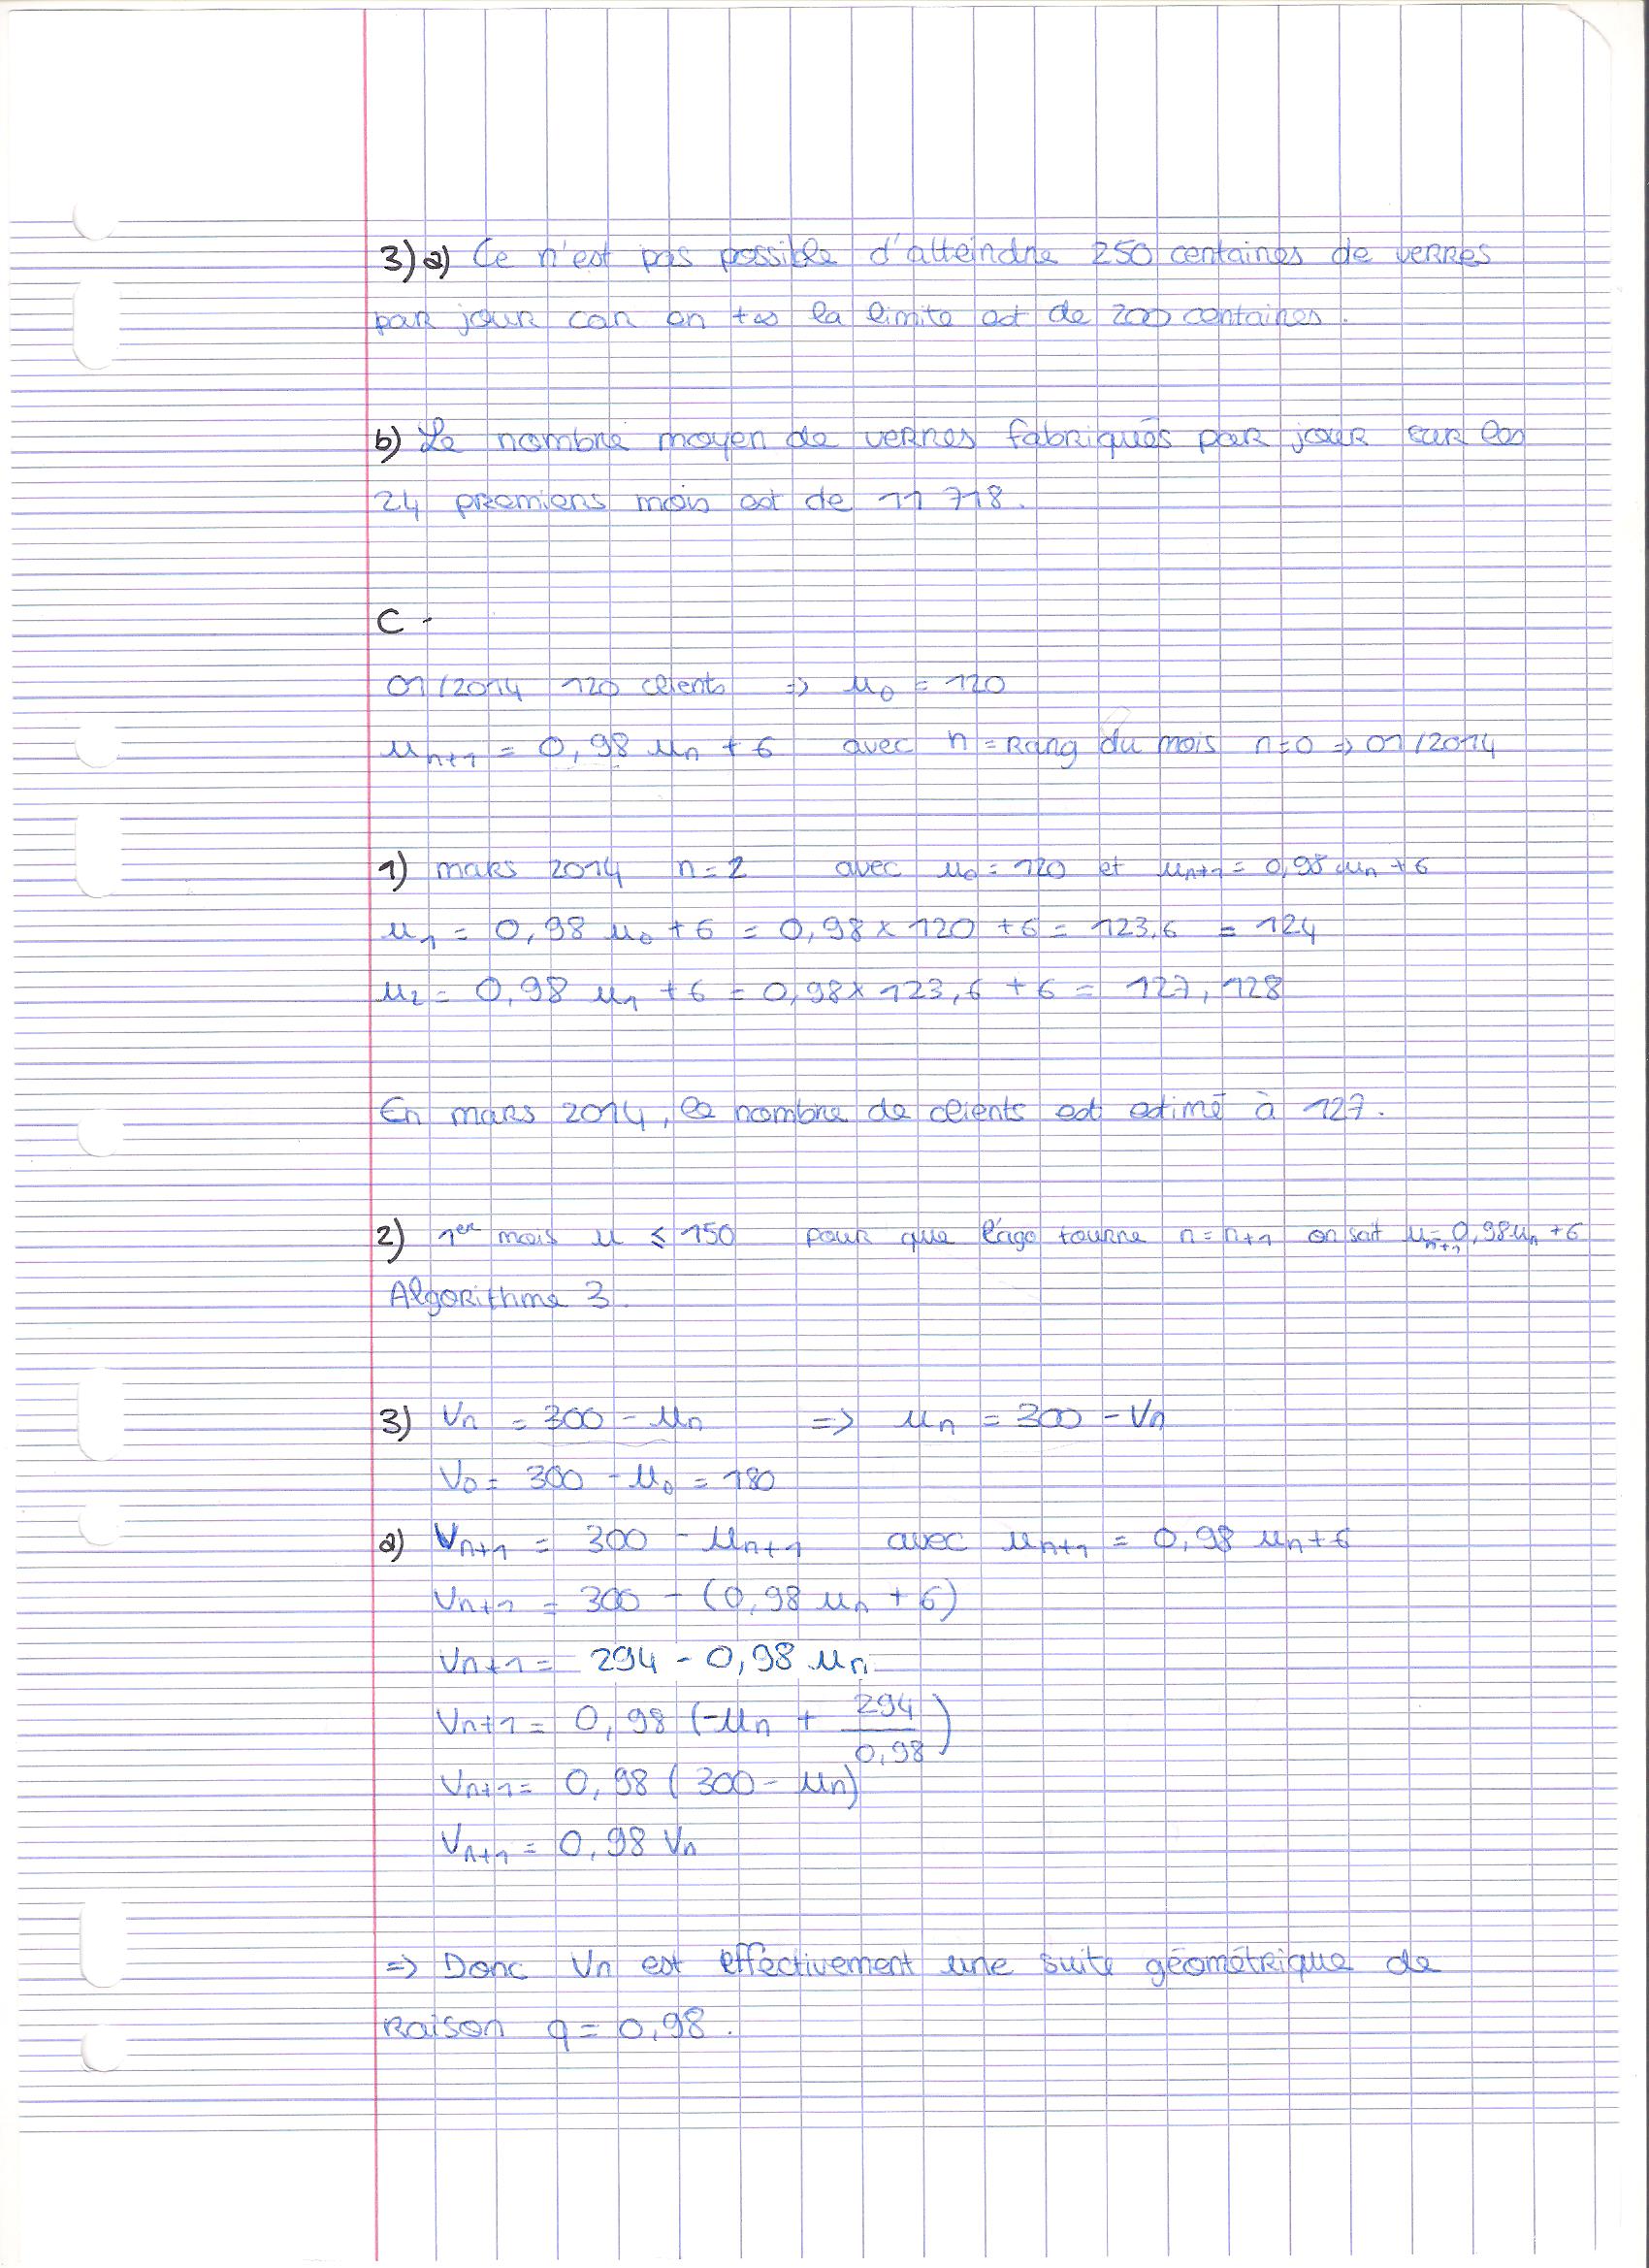 3) a) Ce n'est pas possible d'atteindre 250 centaines de verres
par jour car en +∞ la limite est de 200 centaines.
b) Le nombre moyen de verres fabriqués par jour sur les
24 premiers mois est de 11 718.
C -
01/2014 120 clients => u0 = 120
un+1 = 0,98 un + 6 avec n = Rang du mois n=0 => 01/2014
1) mars 2014 n = 2 avec u0 = 120 et un+1 = 0,98 un + 6
u1 = 0,98 u0 + 6 = 0,98 x 120 + 6 = 123,6 = 124
u2 = 0,98 u1 + 6 = 0,98 x 123,6 + 6 = 127,128
En mars 2014, le nombre de clients est estimé à 127.
2) 1er mois u ≤ 150 pour que l'algo tourne n = n+1 on sait un+1 = 0,98 un + 6
Algorithme 3.
3) Vn = 300 - un => un = 300 - Vn
V0 = 300 - u0 = 180
a) Vn+1 = 300 - un+1 avec un+1 = 0,98 un + 6
Vn+1 = 300 - (0,98 un + 6)
Vn+1 = 294 - 0,98 un
Vn+1 = 0,98 (-un + 294/0,98)
Vn+1 = 0,98 (300 - un)
Vn+1 = 0,98 Vn
=> Donc Vn est effectivement une suite géométrique de
Raison q = 0,98.